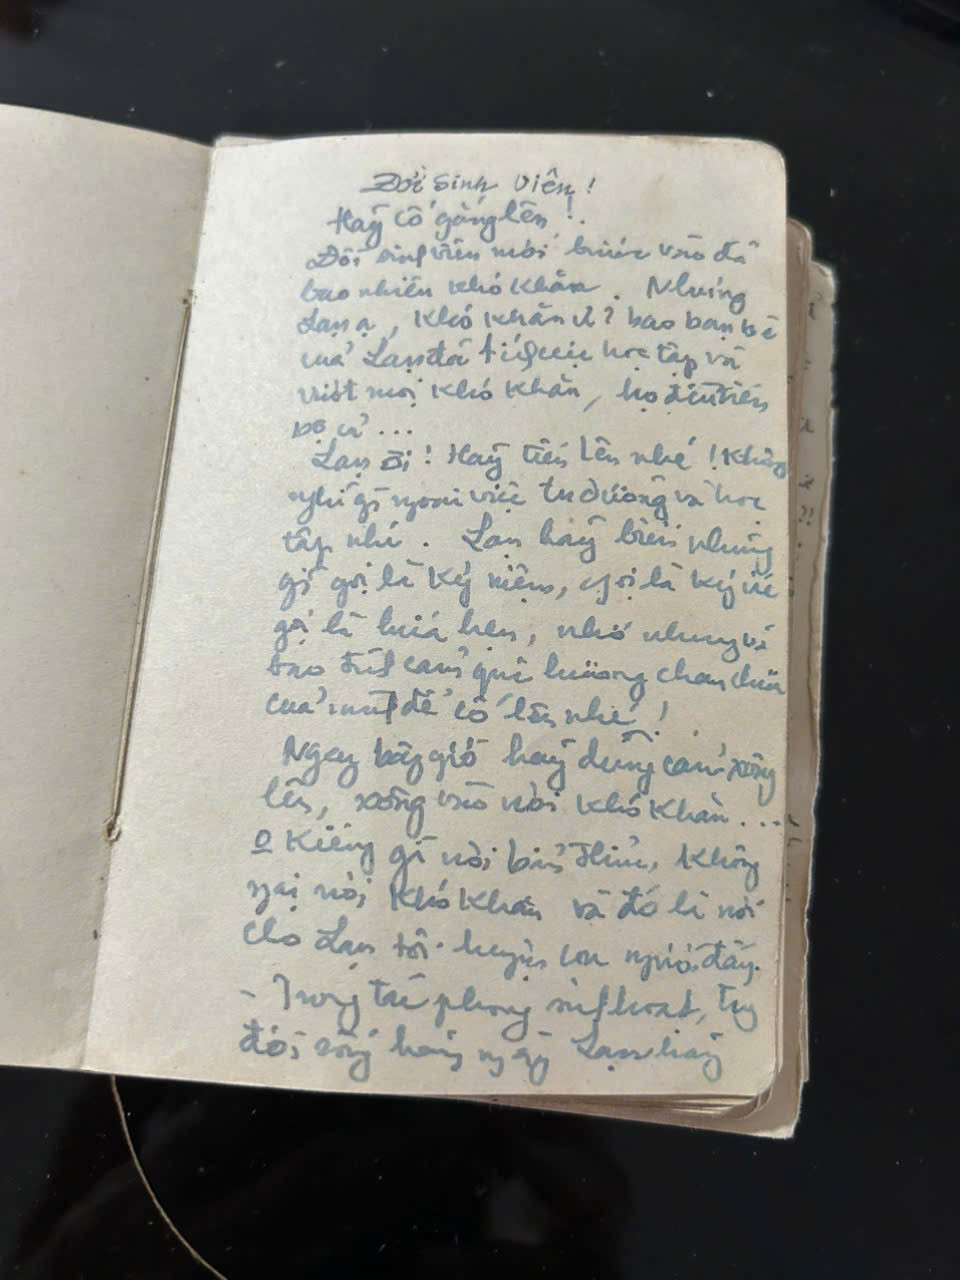 Đời sinh viên!
Hãy cố gắng lên!.
Đời sinh viên mới bước vào đã
bao nhiêu khó khăn. Nhưng
Lan ạ, khó khăn ì? bao bạn bè
của Lan đã tiếp tục học tập và
vượt mọi khó khăn, họ đều tiến
bộ cả...
Lan ơi! Hãy tiến lên nhé! Không
nghĩ gì ngoài việc tu dưỡng và học
tập nhé. Lan hãy biến những
gì gọi là kỷ niệm, gọi là
gọi là hứa hẹn, nhớ nhung và
bao tình cảm quê hương chan chứa
của mình để cố lên nhé!
Ngay bây giờ hãy dũng cảm xông
lên, xông vào nơi khó khăn...
o kiêng gì nơi không
ngại nơi khó khăn và đó là nơi
cho Lan tôi luyện con người đấy.
- Trong tác phong sinh hoạt,
đời sống hàng ngày Lan hãy